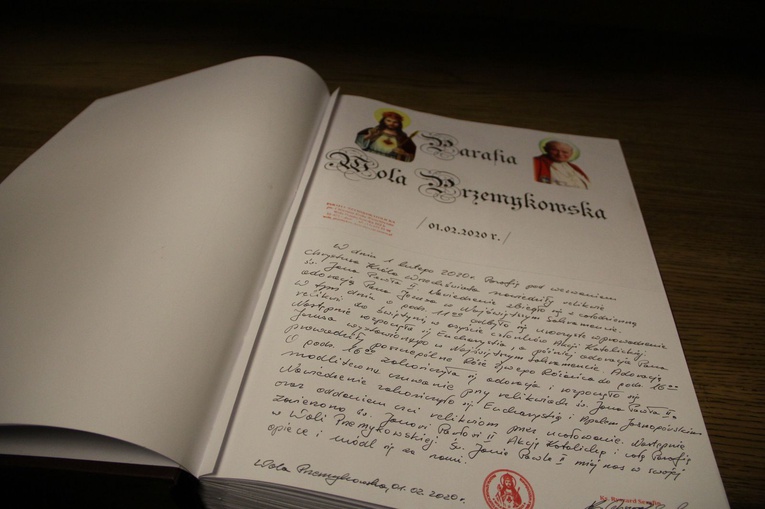 Parafia
Wola Przemykowska
/01.02.2020 r./
W dniu 1 lutego 2020r. Parafię pod wezwaniem
Chrystusa Króla Wszechświata nawiedziły relikwie
św. Jana Pawła II. Nawiedzenie zbiegło się z całodzienną
adoracją Pana Jezusa w Najświętszym Sakramencie.
W tym dniu o godz. 11⁰⁰ odbyło się uroczyste wprowadzenie
relikwii do świątyni w asyście członków Akcji Katolickiej.
Następnie rozpoczęła się Eucharystia a później adoracja Pana
Jezusa wystawionego w Najświętszym Sakramencie. Adorację
prowadziły poszczególne Róże Żywego Różańca do godz. 16⁰⁰
O godz. 16⁰⁰ zakończyła się adoracja i rozpoczęło się
modlitewne czuwanie przy relikwiach św. Jana Pawła II.
Nawiedzenie zakończyło się Eucharystią i Apelem Jasnogórskim
oraz oddaniem czci relikwiom przez ucałowanie. Następnie
zawierzono św. Janowi Pawłowi II Akcję Katolicką i całą Parafię
w Woli Przemykowskiej. Św. Janie Pawle II miej nas w swojej
opiece i módl się za nami.
Wola Przemykowska, 01.02.2020r.